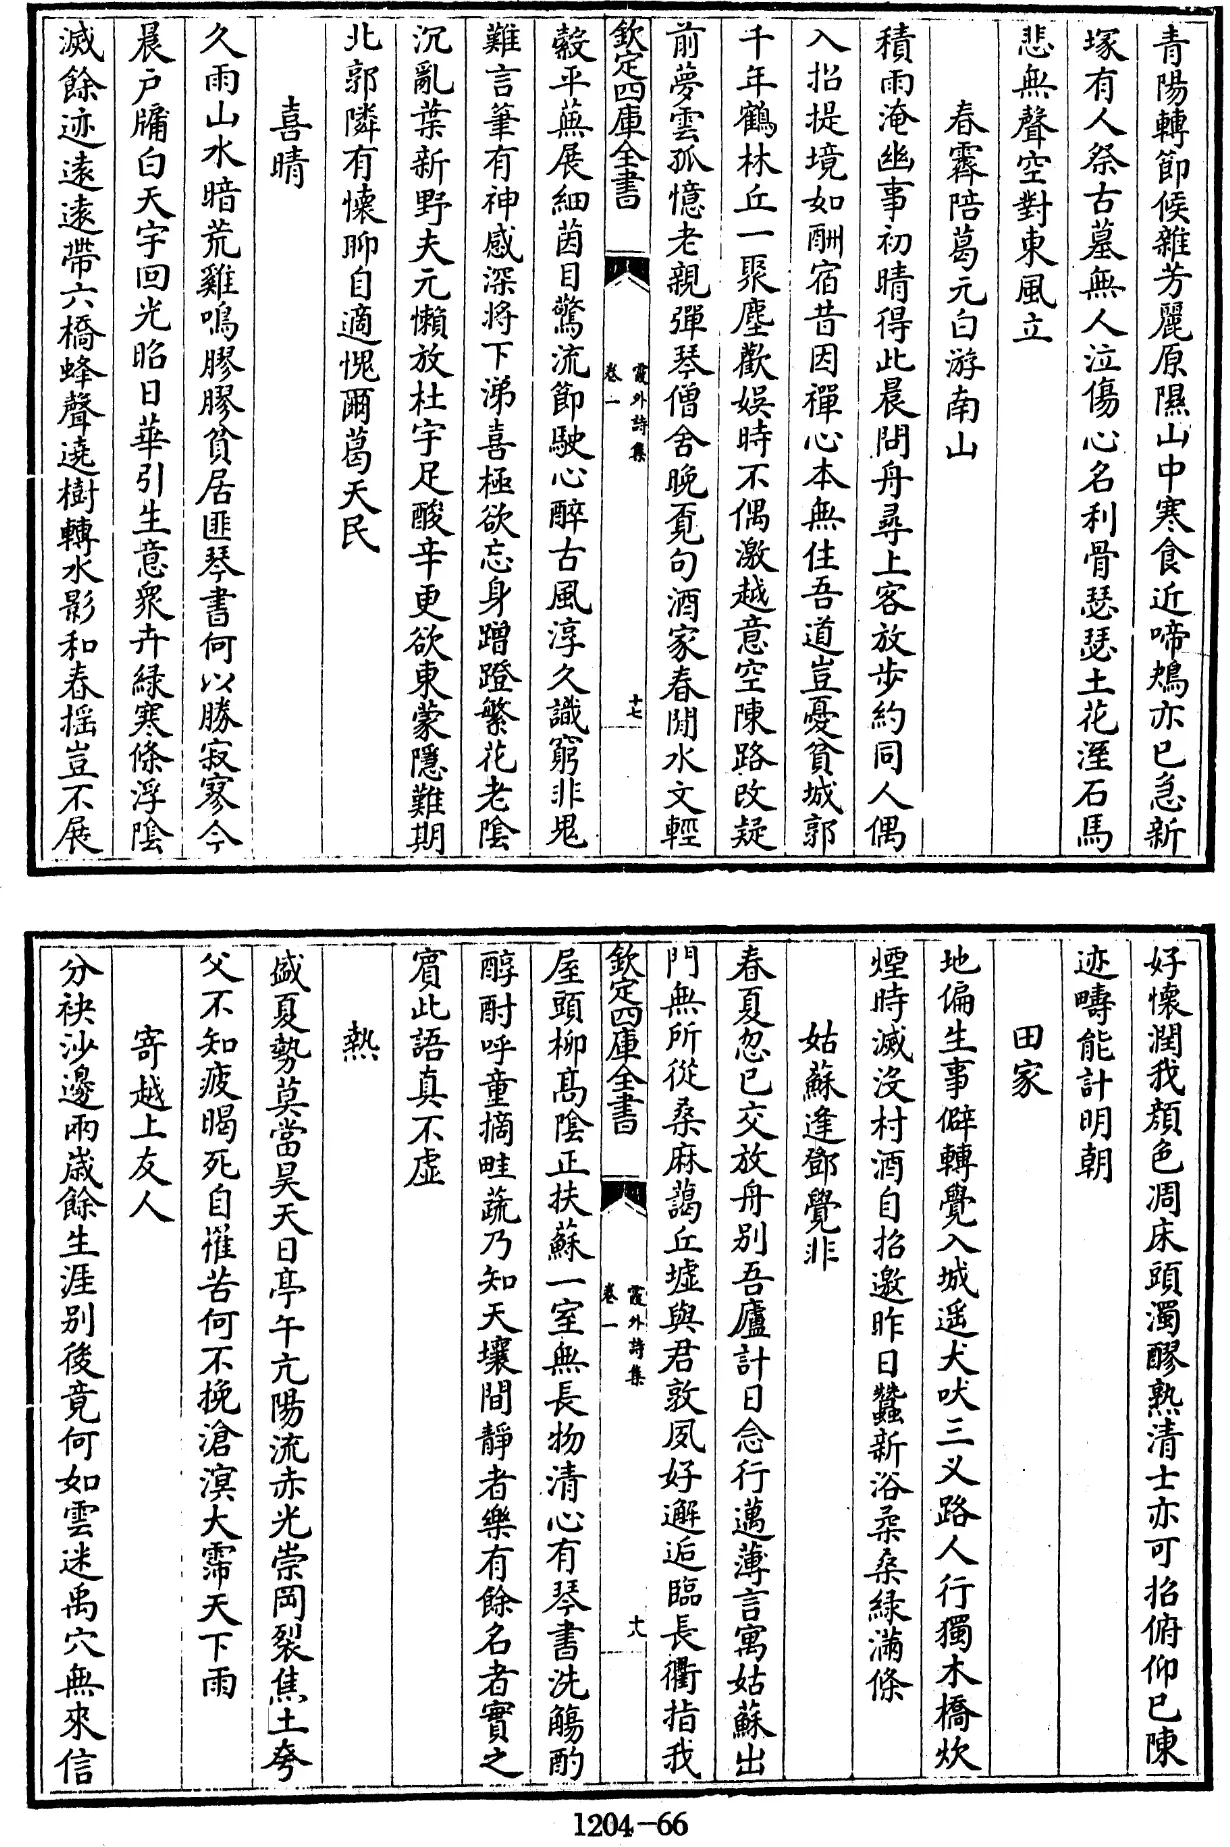 青陽轉節候雜芳麗原隰山中寒食近啼鴂亦已急新
塚有人祭古墓無人泣傷心名利骨瑟瑟土花溼石馬
悲無聲空對東風立
春霽陪葛元白游南山
積雨淹幽事初晴得此晨問舟尋上客放步約同人偶
入招提境如酬宿昔因禪心本無住吾道豈憂貧城郭
千年鶴林丘一聚塵歡娛時不偶激越意空陳路改疑
前夢雲孤憶老親彈琴僧舍晚覔句酒家春閒水文輕
欽定四庫全書
霞外詩集
卷一
十七
縠平蕪展細茵目驚流節駛心醉古風淳久識窮非鬼
難言筆有神感深將下涕喜極欲忘身蹭蹬繁花老陰
沉亂葉新野夫元懶放杜宇足酸辛更欲東蒙隱難期
北郭隣有懷聊自適愧爾葛天民
喜晴
久雨山水暗荒雞鳴膠膠貧居匪琴書何以勝寂寥今
晨户牖白天宇回光昭日華引生意衆卉緑寒條浮陰
滅餘迹遠遠帶六橋蜂聲遶樹轉水影和春揺豈不展
好懐潤我顔色凋床頭濁醪熟清士亦可招俯仰已陳
迹疇能計明朝
田家
地偏生事僻轉覺入城遥犬吠三义路人行獨木橋炊
煙時滅没村酒自招邀昨日蠶新浴桑桑緑滿條
姑蘇逢鄧覺非
春夏忽已交放舟别吾廬計日念行邁薄言寓姑蘇出
門無所從桑麻藹丘墟與君敦夙好邂逅臨長衢指我
欽定四庫全書
霞外詩集
卷一
十八
屋頭柳髙陰正扶蘇一室無長物清心有琴書洗觴酌
醇酎呼童摘畦蔬乃知天壤間靜者樂有餘名者實之
賓此語真不虚
熱
盛夏勢莫當昊天日亭午亢陽流赤光崇岡裂焦土夸
父不知疲暍死自罹苦何不挽滄溟大霈天下雨
寄越上友人
分袂沙邊兩嵗餘生涯别後竟何如雲迷禹穴無來信
1204-66